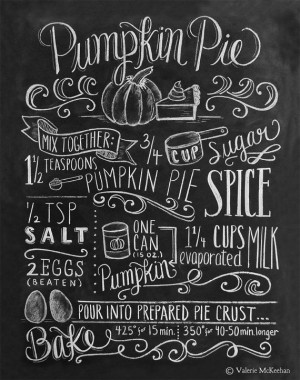 Pumpkin Pie
MIX TOGETHER:
3/4 CUP Sugar
1 1/2 TEASPOONS
PUMPKIN PIE SPICE
1/2 TSP
SALT
ONE
CAN
(15 OZ.)
Pumpkin
1 1/4 CUPS
evaporated MILK
2 EGGS
(BEATEN)
POUR INTO PREPARED PIE CRUST...
Bake 425° for 15 min. 350° for 40-50 min. longer
© Valerie McKeehan